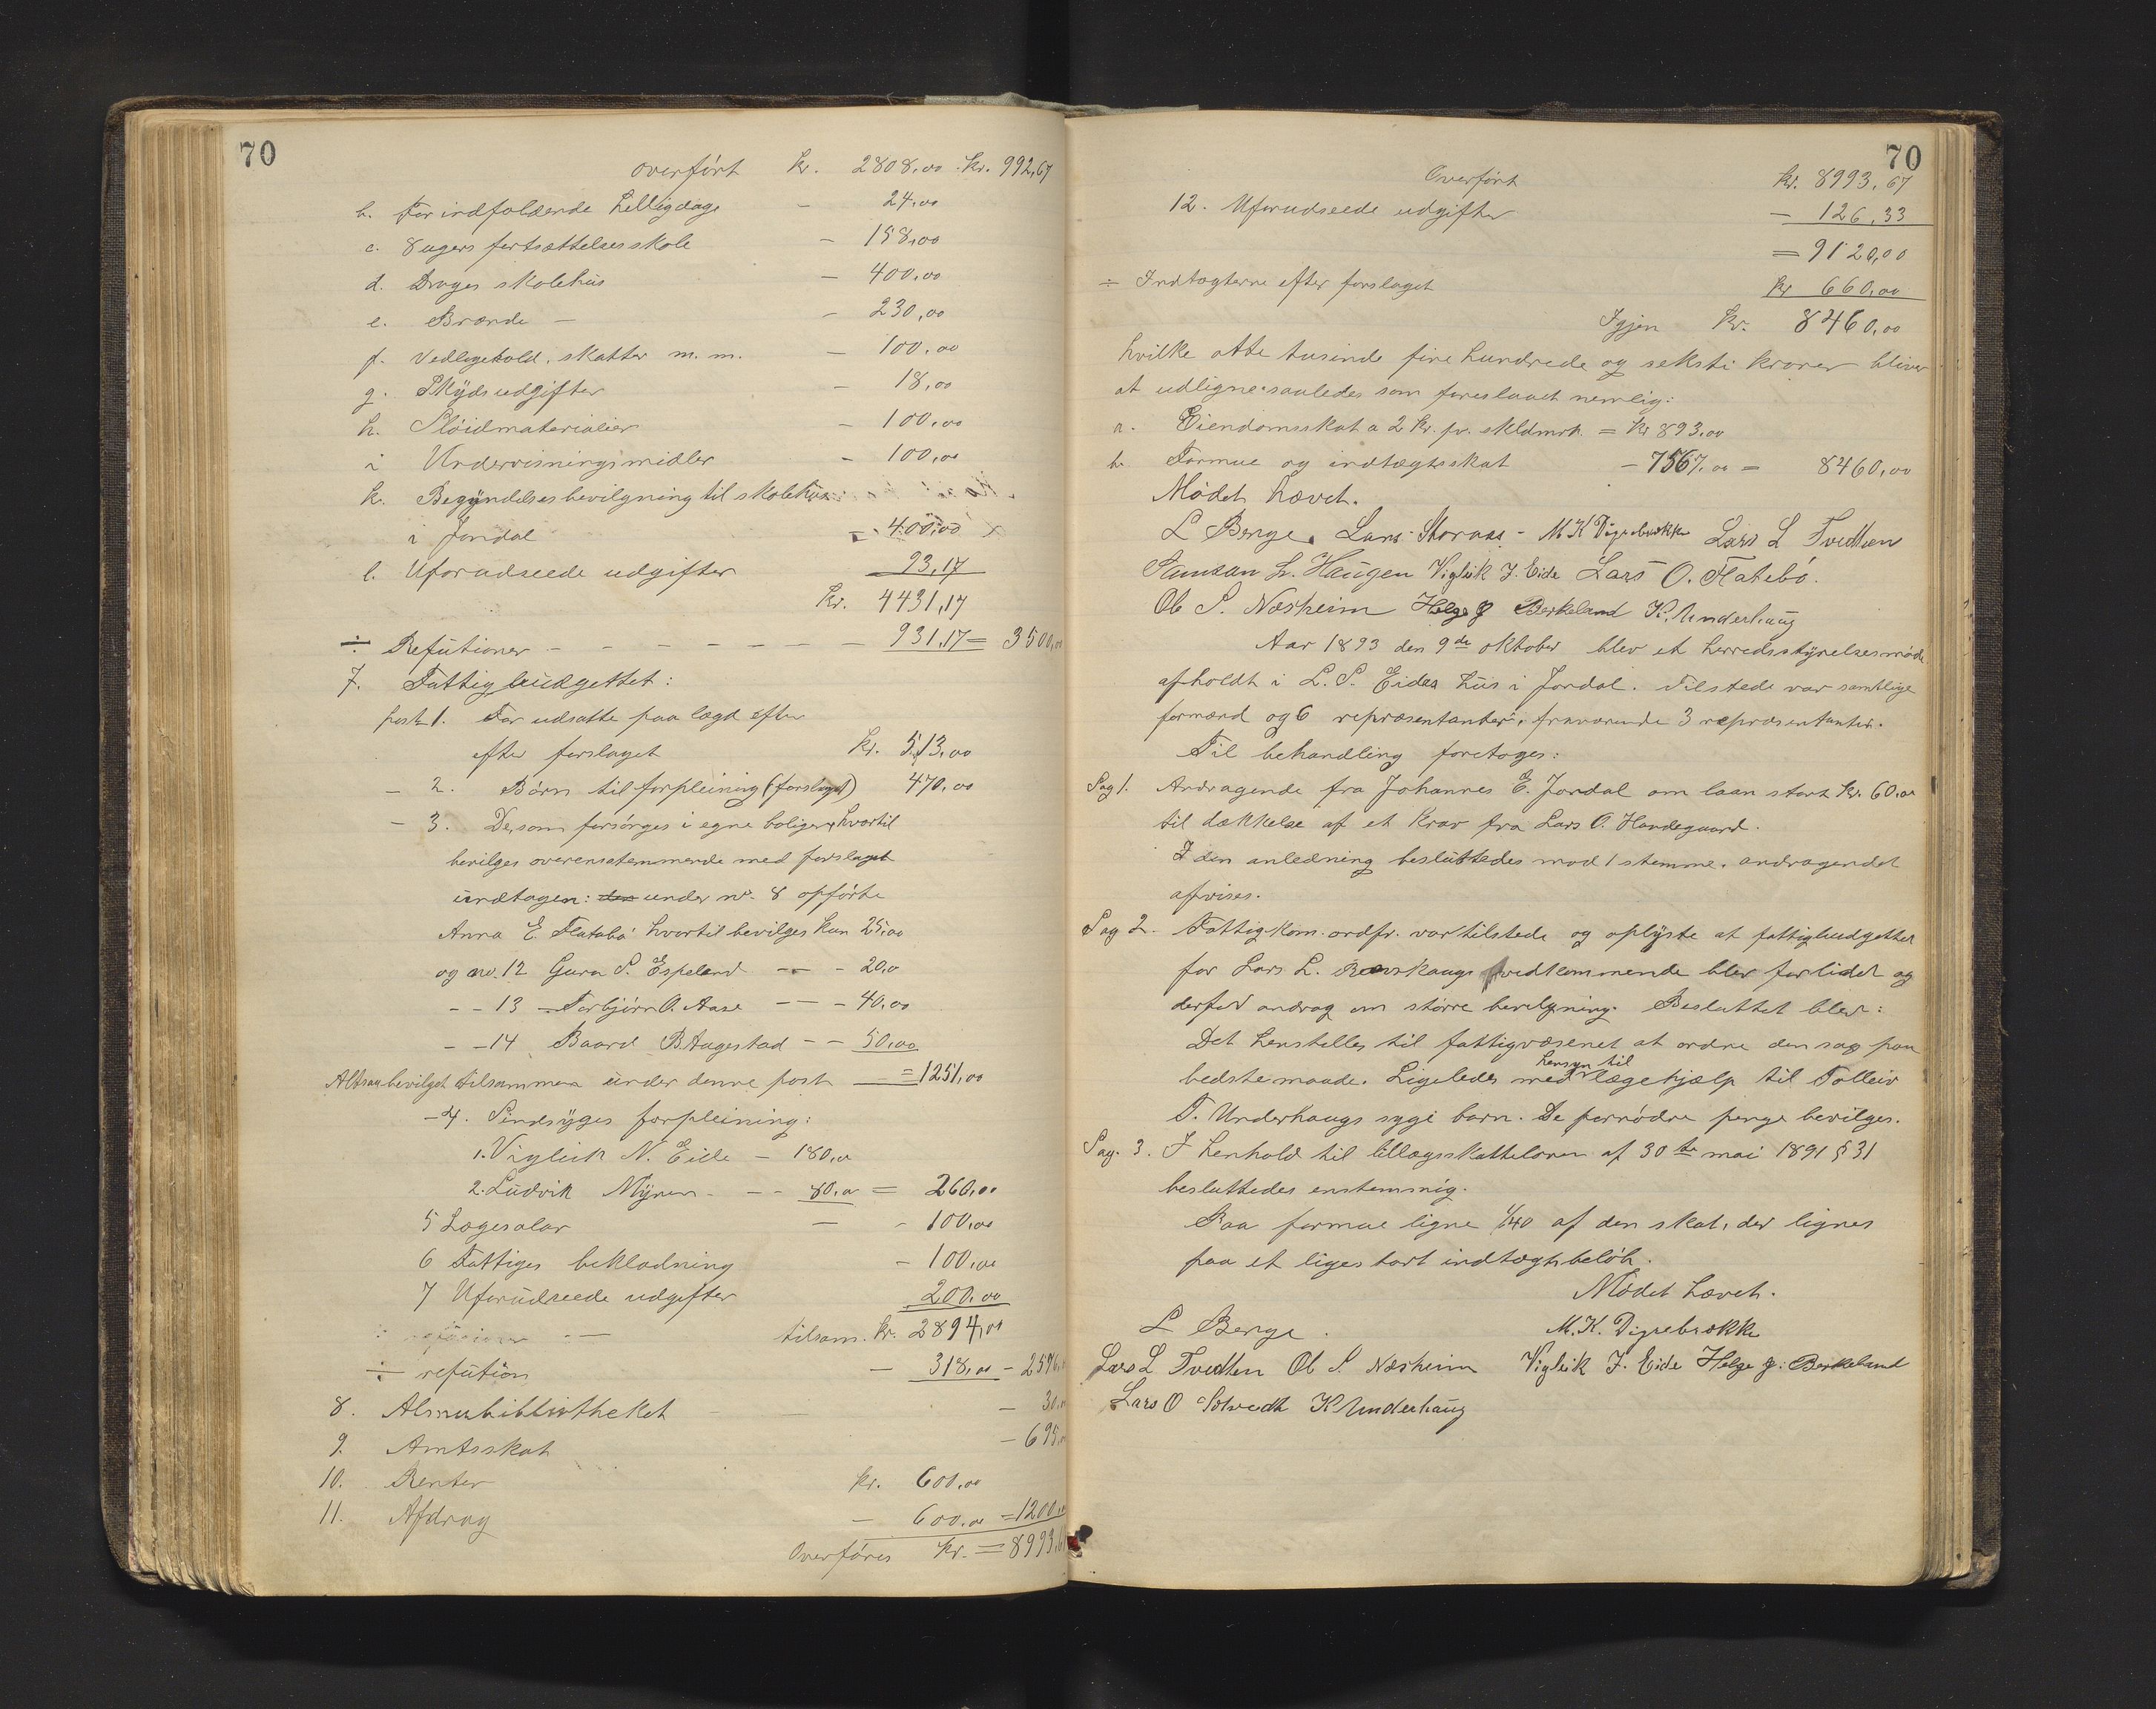 70
overført kr. 2808,00 kr. 992,67
b. For indfaldende helligdage - 24,00
c. 8 ugers fortsættelsesskole - 158,00
d. Drages skolehus - 400,00
e. Brænde - - 230,00
f. Vedligehold, skatter m. m. - 100,00
g. Skydsudgifter - 18,00
h. Sløidmaterialier - 100,00
i Undervisningsmidler - 100,00
k. Begyndelsesbevilgning til skolehus
i Jondal - 400,00
l. Uforudseede udgifter 93,17
kr. 4431,17
÷ Refutioner - - - - - - - 931,17 = 3500,00
7. Fattigbudgettet:
post 1. For udsatte paa lægd efter
efter forslaget kr. 513,00
- 2. Børn til forpleining (forslaget) 470,00
- 3. De, som forsørges i egne boliger, hvortil
bevilges overensstemmende med forslaget
undtagen: den under no. 8 opførte
Anna E. Flatabø hvortil bevilges kun 25,00
og no. 12 Guro S. Espeland - - - 20,0
- - 13 - Torbjørn O. Aase - - - 40,00
- - 14 Baard B Augestad - - 50,00
Altsaa bevilget tilsammen under denne post = 1251,00
- 4. Sindsyges forpleining:
1. Vigleik N. Eide - 180,00
2. Ludvik Myren - - - 80,00 = 260,00
5 Lægesalær - - 100,00
6 Fattiges beklædning - 100,00
7 Uforudseede udgifter 200,00
tilsam. kr. 2894,00
÷ refution - 318,00 - 2576,
8. Almubibliotheket - - - 30,
9. Amtsskat - 695,
10. Renter kr. 600,00
11. Afdrag - 600,00 = 1200,00
Overføres kr. = 8993,6
70
Overført kr. 8993,67
12. Uforudseede udgifter - 126,33
= 9120,00
÷ Indtægterne efter forslaget kr 660,00
Igjen kr. 8460,00
hvilke otte tusinde fire hundrede og seksti kroner bliver
at udligne saaledes som foreslaaet nemlig:
a. Eiendomsskat a 2 kr. pr. skldmrk. = kr 893,00
b. Formue og indtægtsskat - 7567,00 = 8460,00
Mødet hævet.
L Berge. Lars Storaas - M K Digrebrække Lars L Tvedten
Samson L. Haugen Vigleik J. Eide Lars O. Flatebø.
Ol S. Næsheim Helge J Berkeland K. Underhaug
Aar 1893 den 9de oktober blev et herredsstyrelsesmøde
afholdt i L. S. Eides hus i Jondal. Tilstede var samtlige
formænd og 6 repræsentanter, fraværende 3 repræsentanter.
Til behandling foretoges:
Sag 1. Andragende fra Johannes E. Jondal om laan stort kr. 60,00
til dækkelse af et krav fra Lars O. Handegaard.
I den anledning besluttedes mod 1 stemme. andragendet
afvises.
Sag 2. Fattigkom. ordfr. var tilstede og oplyste at fattigbudgettet
for Lars L. vedkommende blev forlidet og
derfor androg om større bevilgning. Besluttet blev:
Det henstilles til fattigvæsenet at ordne den sag paa
bedste maade. Ligeledes med hensyn til lægehjælp til Tolleiv
T. Underhaugs syge barn. De fornødne penge bevilges.
Sag. 3. I henhold til tillægsskatteloven af 30te mai 1891 § 31
besluttedes enstemmig.
Paa formue ligne 1/40 af den skat, der lignes
paa et ligestort indtægtsbeløb.
Mødet hævet.
L Berge. M. K. Digrebrække
Lars L Tvedten Ol S. Næsheim Vigleik J. Eide Helge J: Berkeland
Lars O K Underhaug